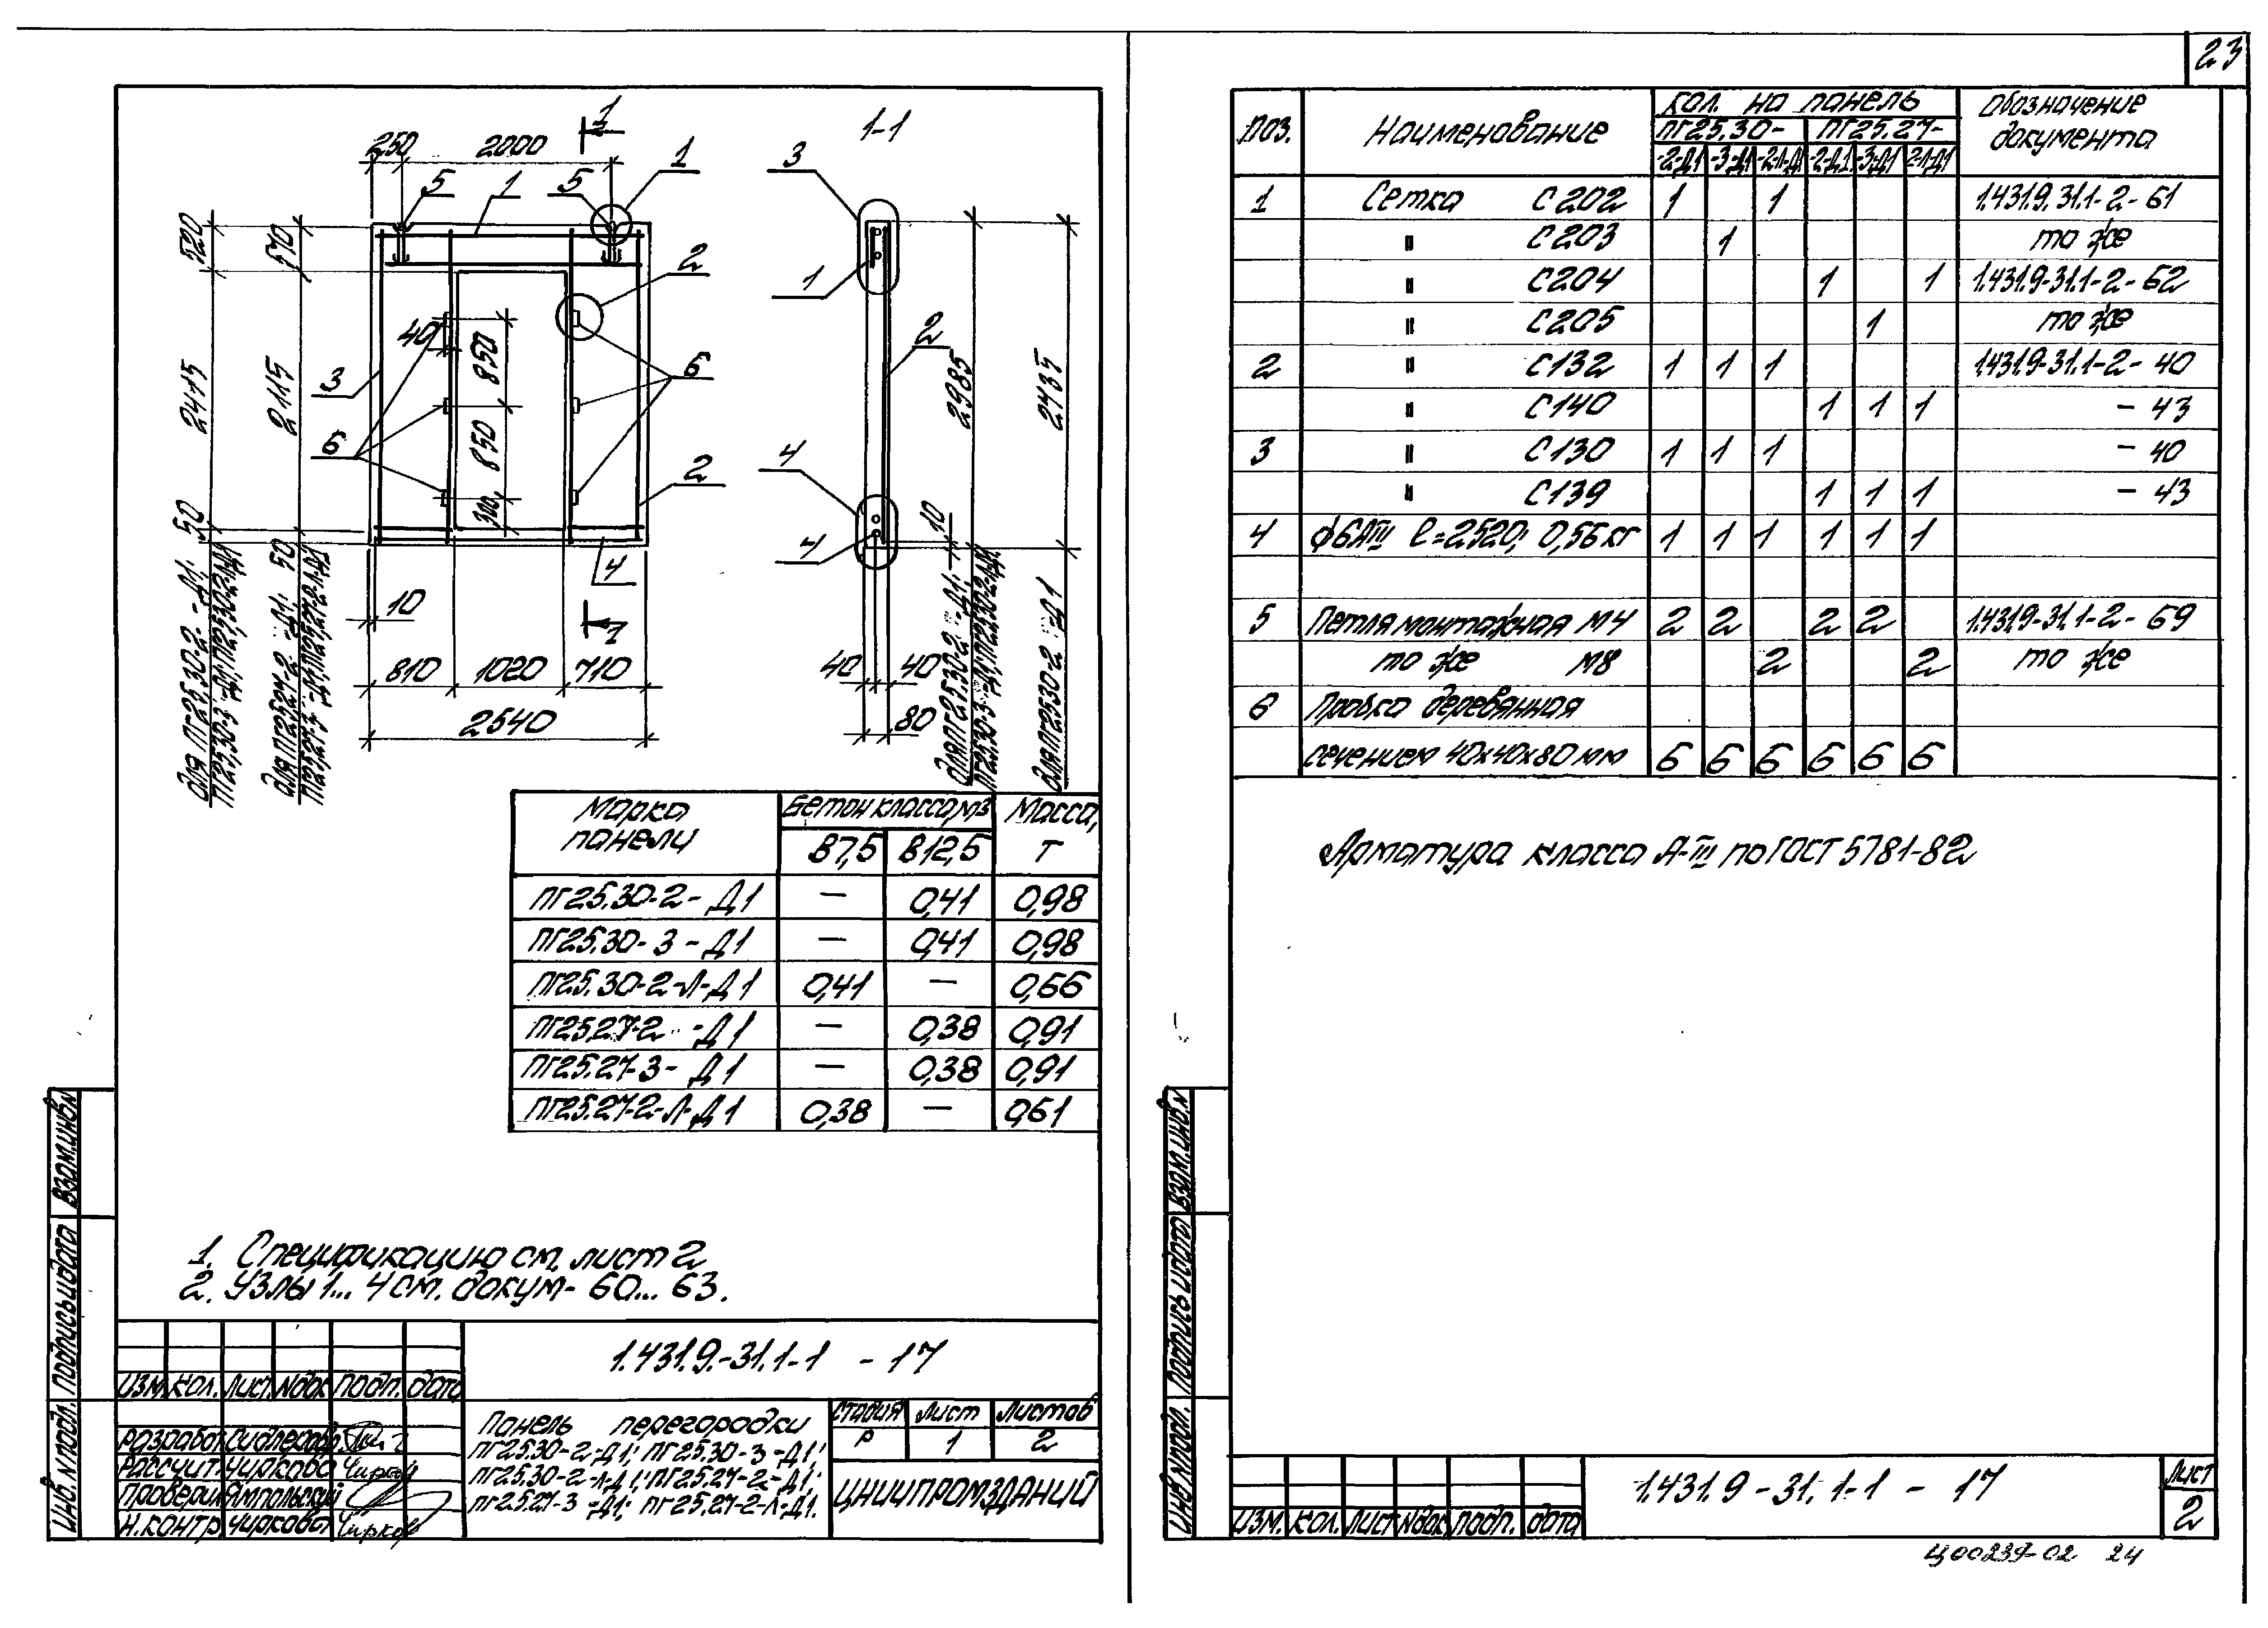 23
1
250
2000
5
1
5
1
520
570
2
40
850
3
2415
2115
6
850
6
2
300
50
50
4
10
1
810
1020
710
2540
для ПГ25.30-2- -Д1;
ПГ25.30-3 -Д1; ПГ25.30-2-Л-Д1
для ПГ25.27-2 -Д1;
ПГ25.27-3 -Д1; ПГ25.27-2-Л-Д1
1-1
3
1
2
2985
2435
4
10
4
40
40
80
для ПГ25.30-2 -Д1;
ПГ25.30-3 -Д1; ПГ25.30-2-Л-Д1
для ПГ25.30-2 -Д1
Марка панели | Бетон класса, м3 | Масса, т
В7,5 | В12,5
ПГ25.30-2- Д1 | — | 0,41 | 0,98
ПГ25.30- 3 -Д1 | — | 0,41 | 0,98
ПГ25.30-2-Л-Д1 | 0,41 | — | 0,66
ПГ25.27-2 -Д1 | — | 0,38 | 0,91
ПГ25.27-3- Д1 | — | 0,38 | 0,91
ПГ25.27-2-Л-Д1 | 0,38 | — | 0,61
1. Спецификацию см. лист 2
2. Узлы 1... 4 см. докум- 60... 63.
1.431.9.-31.1-1 - 17
Изм. Кол. Лист №док Подп. Дата
Разработ.
Рассчит. Чиркова Чирков
Проверил Ямпольский
Н.контр Чиркова Чирков
Панель перегородки
ПГ25.30-2-Д1; ПГ25.30-3-Д1;
ПГ25.30-2-Л-Д1; ПГ25.27-2-Д1;
ПГ25.27-3 -Д1; ПГ25.27-2-Л-Д1.
Стадия Лист Листов
Р 1 2
ЦНИИПРОМЗДАНИЙ
Инв. № подл. Подпись и дата Взам. инв. №
Поз. | Наименование | Кол. на панель | Обозначение документа
ПГ25.30- | ПГ25.27-
-2-Д1 | -3-Д1 | -2-Л-Д1 | -2-Д1 | -3-Д1 | 2-Л-Д1
1 Сетка С202 1 1 1.431.9.31.1-2-61
" С203 1 то же
" С204 1 1 1.431.9-31.1-2-62
" С205 1 то же
2 " С132 1 1 1 1.431.9-31.1-2- 40
" С140 1 1 1 - 43
3 " С130 1 1 1 - 40
" С139 1 1 1 - 43
4 ф6АIII l=2520; 0,56 кг 1 1 1 1 1 1
5 Петля монтажная М4 2 2 2 2 1.431.9-31.1-2-69
то же М8 2 2 то же
6 Пробка деревянная
сечением 40х40х80 мм 6 6 6 6 6 6
Арматура класса А-III по ГОСТ 5781-82
Инв. № подл. Подпись и дата Взам. инв. №
Изм. Кол. Лист №док Подп. Дата
1.431.9-31.1-1 - 17
Лист
2
Ц00239-02 24